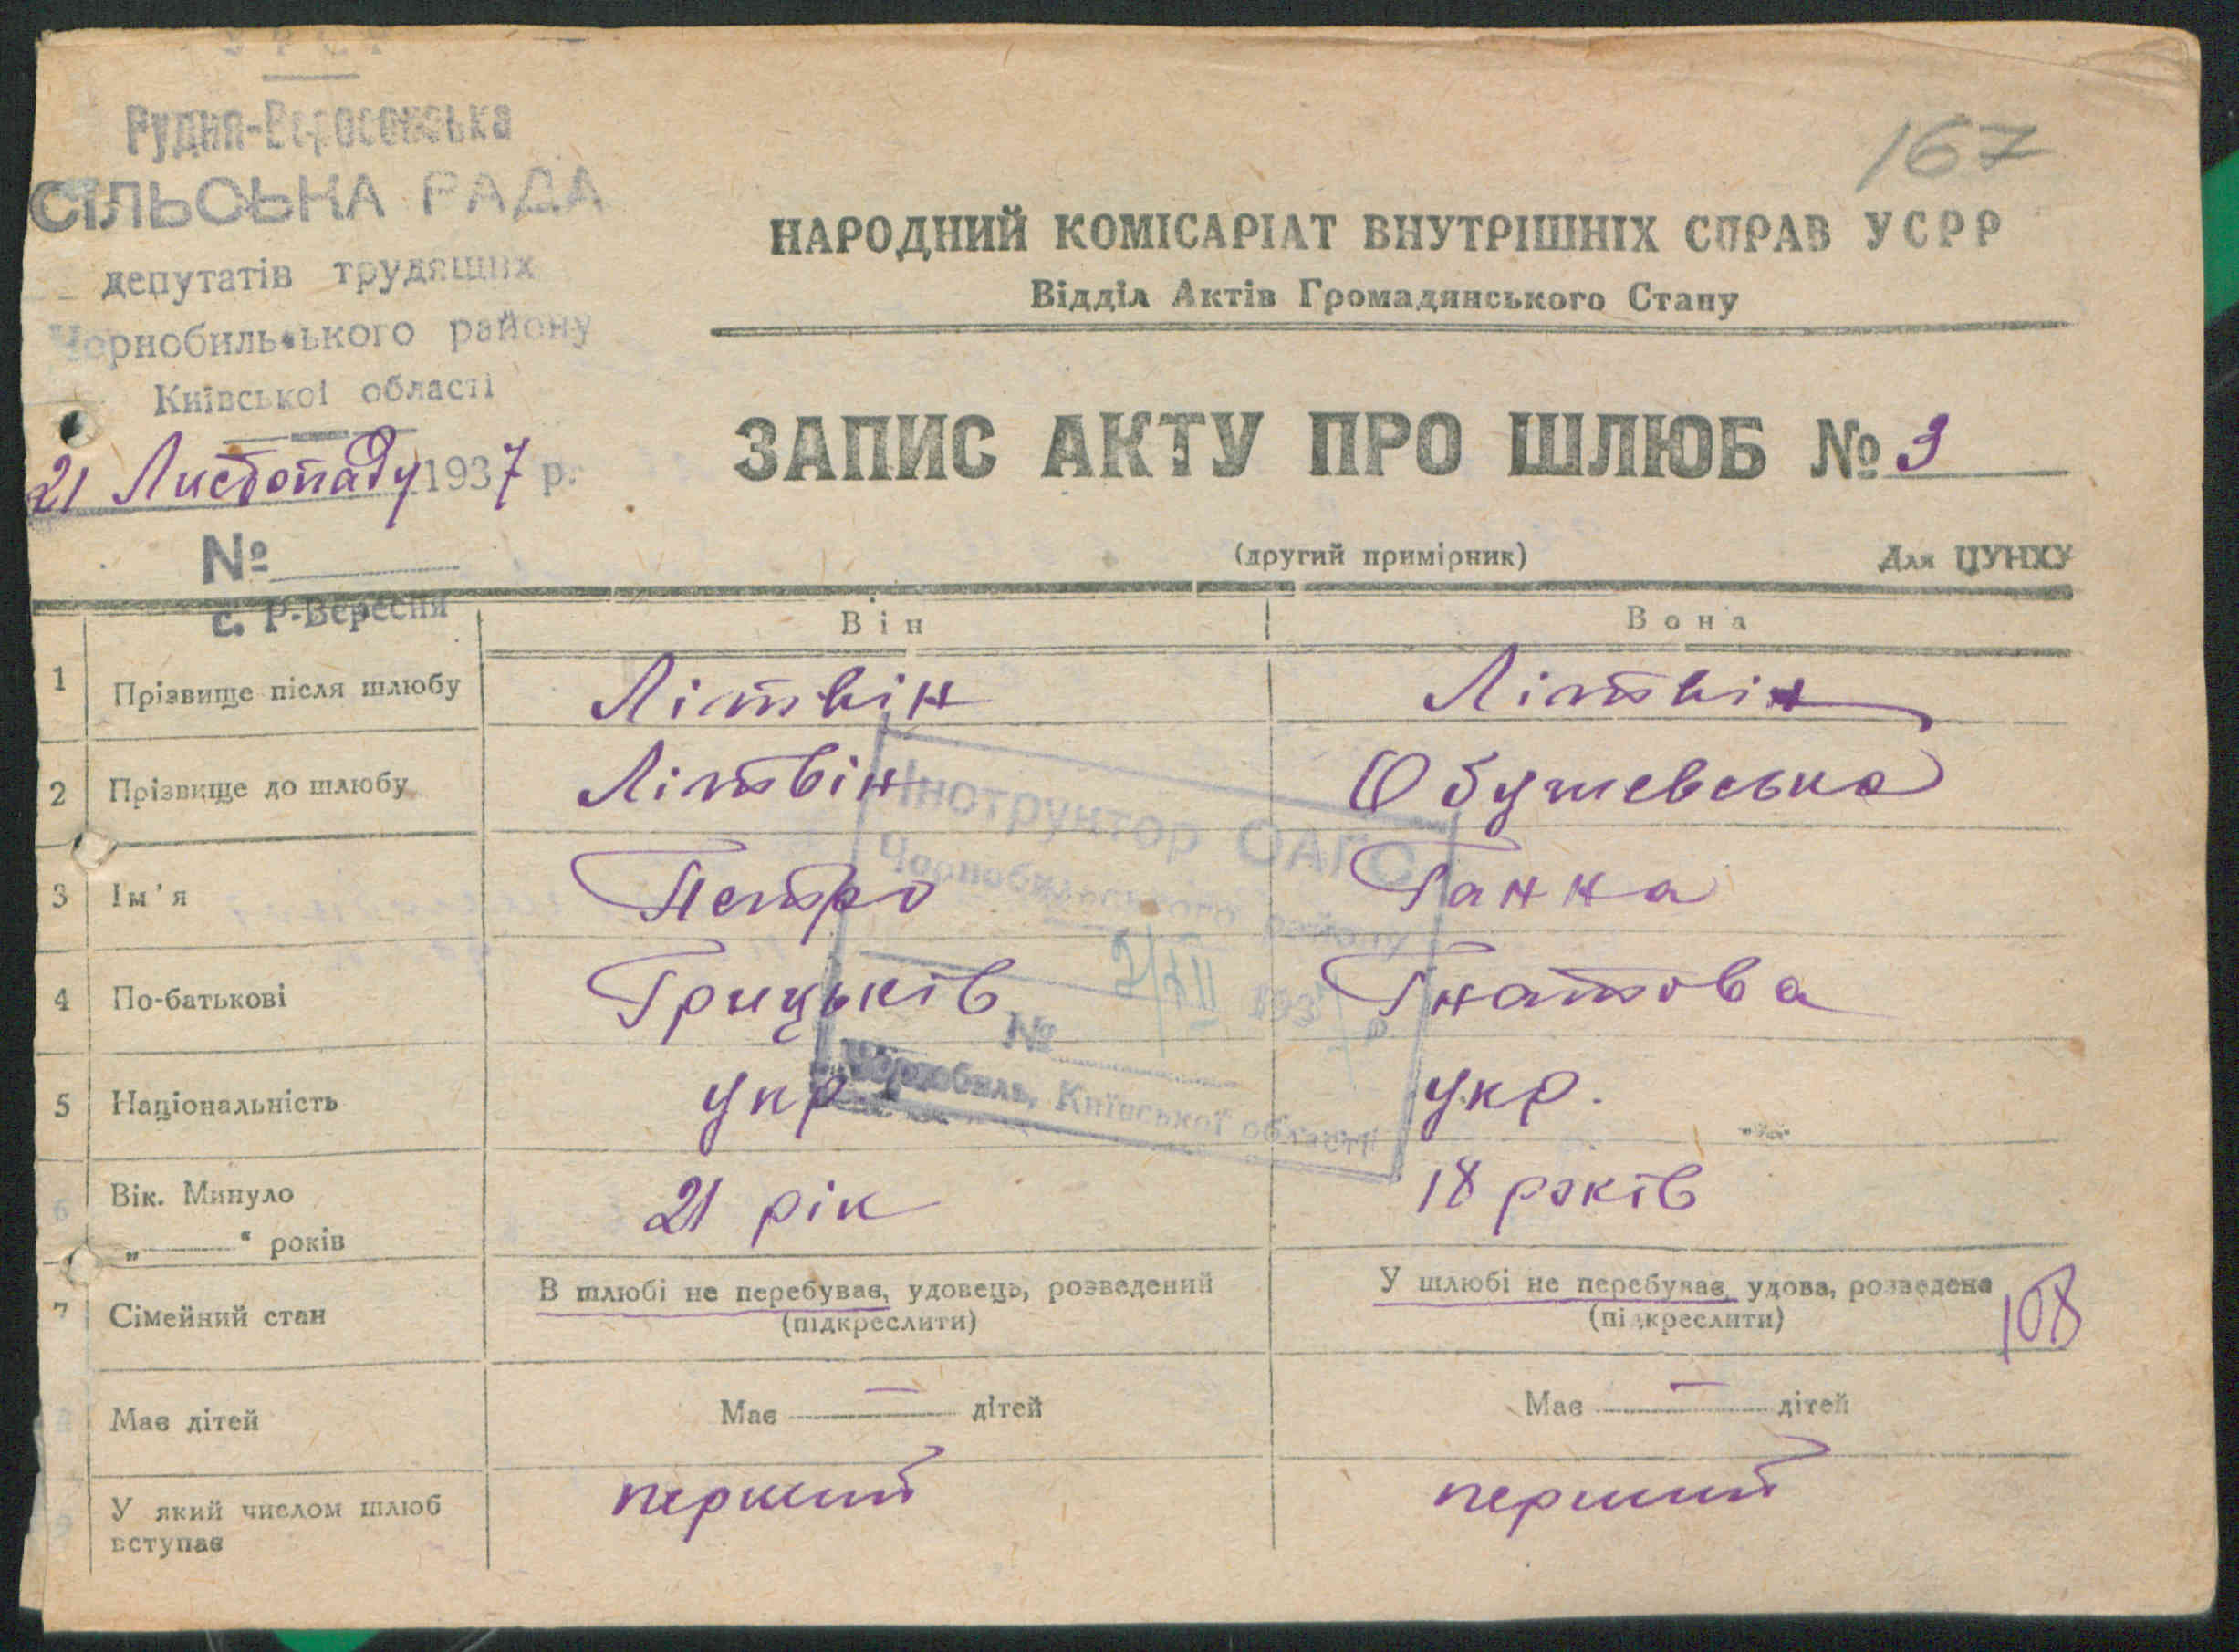 УРСР
Рудня-Вересенська
СІЛЬСЬКА РАДА
депутатів трудящих
Чорнобильського району
Київської області
21 Листопаду 1937 р.
№
с. Р-Вересня
167
НАРОДНИЙ КОМІСАРІАТ ВНУТРІШНІХ СПРАВ УСРР
Відділ Актів Громадянського Стану
ЗАПИС АКТУ ПРО ШЛЮБ № 3
(другий примірник) Для ЦУНХУ
Він Вона
1 Прізвище після шлюбу Літвін Літвін
2 Прізвище до шлюбу Літвін Обушевська
3 Ім'я Петро Ганна
4 По-батькові Грицьків Гнатова
5 Національність укр укр.
6 Вік. Минуло
„ “ років 21 рік 18 років
7 Сімейний стан В шлюбі не перебуває, удовець, розведений У шлюбі не перебуває, удова, розведена
(підкреслити) (підкреслити)
108
Має дітей Має — дітей Має — дітей
У який числом шлюб
вступає перший перший
Інструктор ОАГС
Чорнобильського району
2/XII 1937 р
№
м. Чорнобиль, Київської області